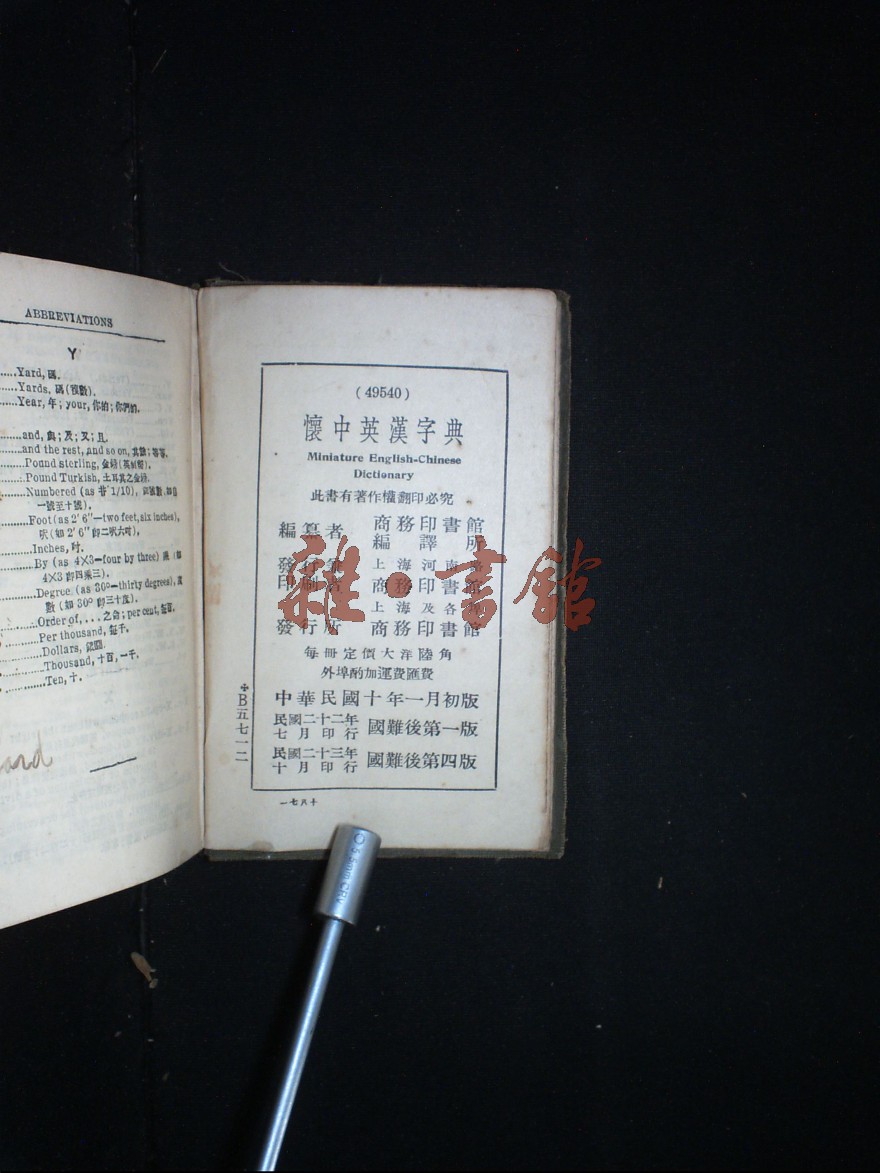 ABBREVIATIONS
Y
......Yard, 碼.
......Yards, 碼(複數).
......Year, 年; your, 你的; 你們的.
......and, 與; 及; 又; 且.
......and the rest, and so on, 其餘; 等等.
......Pound sterling, 金鎊(英制幣).
......Pound Turkish, 土耳其之金鎊.
......Numbered (as # 1/10),
一號至十號).
......Foot (as 2' 6"—two feet, six inches),
呎 (如 2' 6" 卽二呎六吋).
......Inches, 吋.
......By (as 4×3—four by three) 乘 (如
4×3 卽四乘三).
......Degree (as 30°—thirty degrees), 度
數 (如 30° 卽三十度).
......Order of, ... 之命; per cent, 每百.
......Per thousand, 每千.
......Dollars, 銀圓.
......Thousand, 十百, 一千.
......Ten, 十.
(49540)
懷中英漢字典
Miniature English-Chinese
Dictionary
此書有著作權翻印必究
編纂者 商務印書館
編譯所
發行兼 上海河南路
印刷者 商務印書館
上海及各埠
發行所 商務印書館
每冊定價大洋陸角
外埠酌加運費匯費
中華民國十年一月初版
民國二十二年七月印行 國難後第一版
民國二十三年十月印行 國難後第四版
B五七一二
一七八十
雜·書館
5.5mm CRV